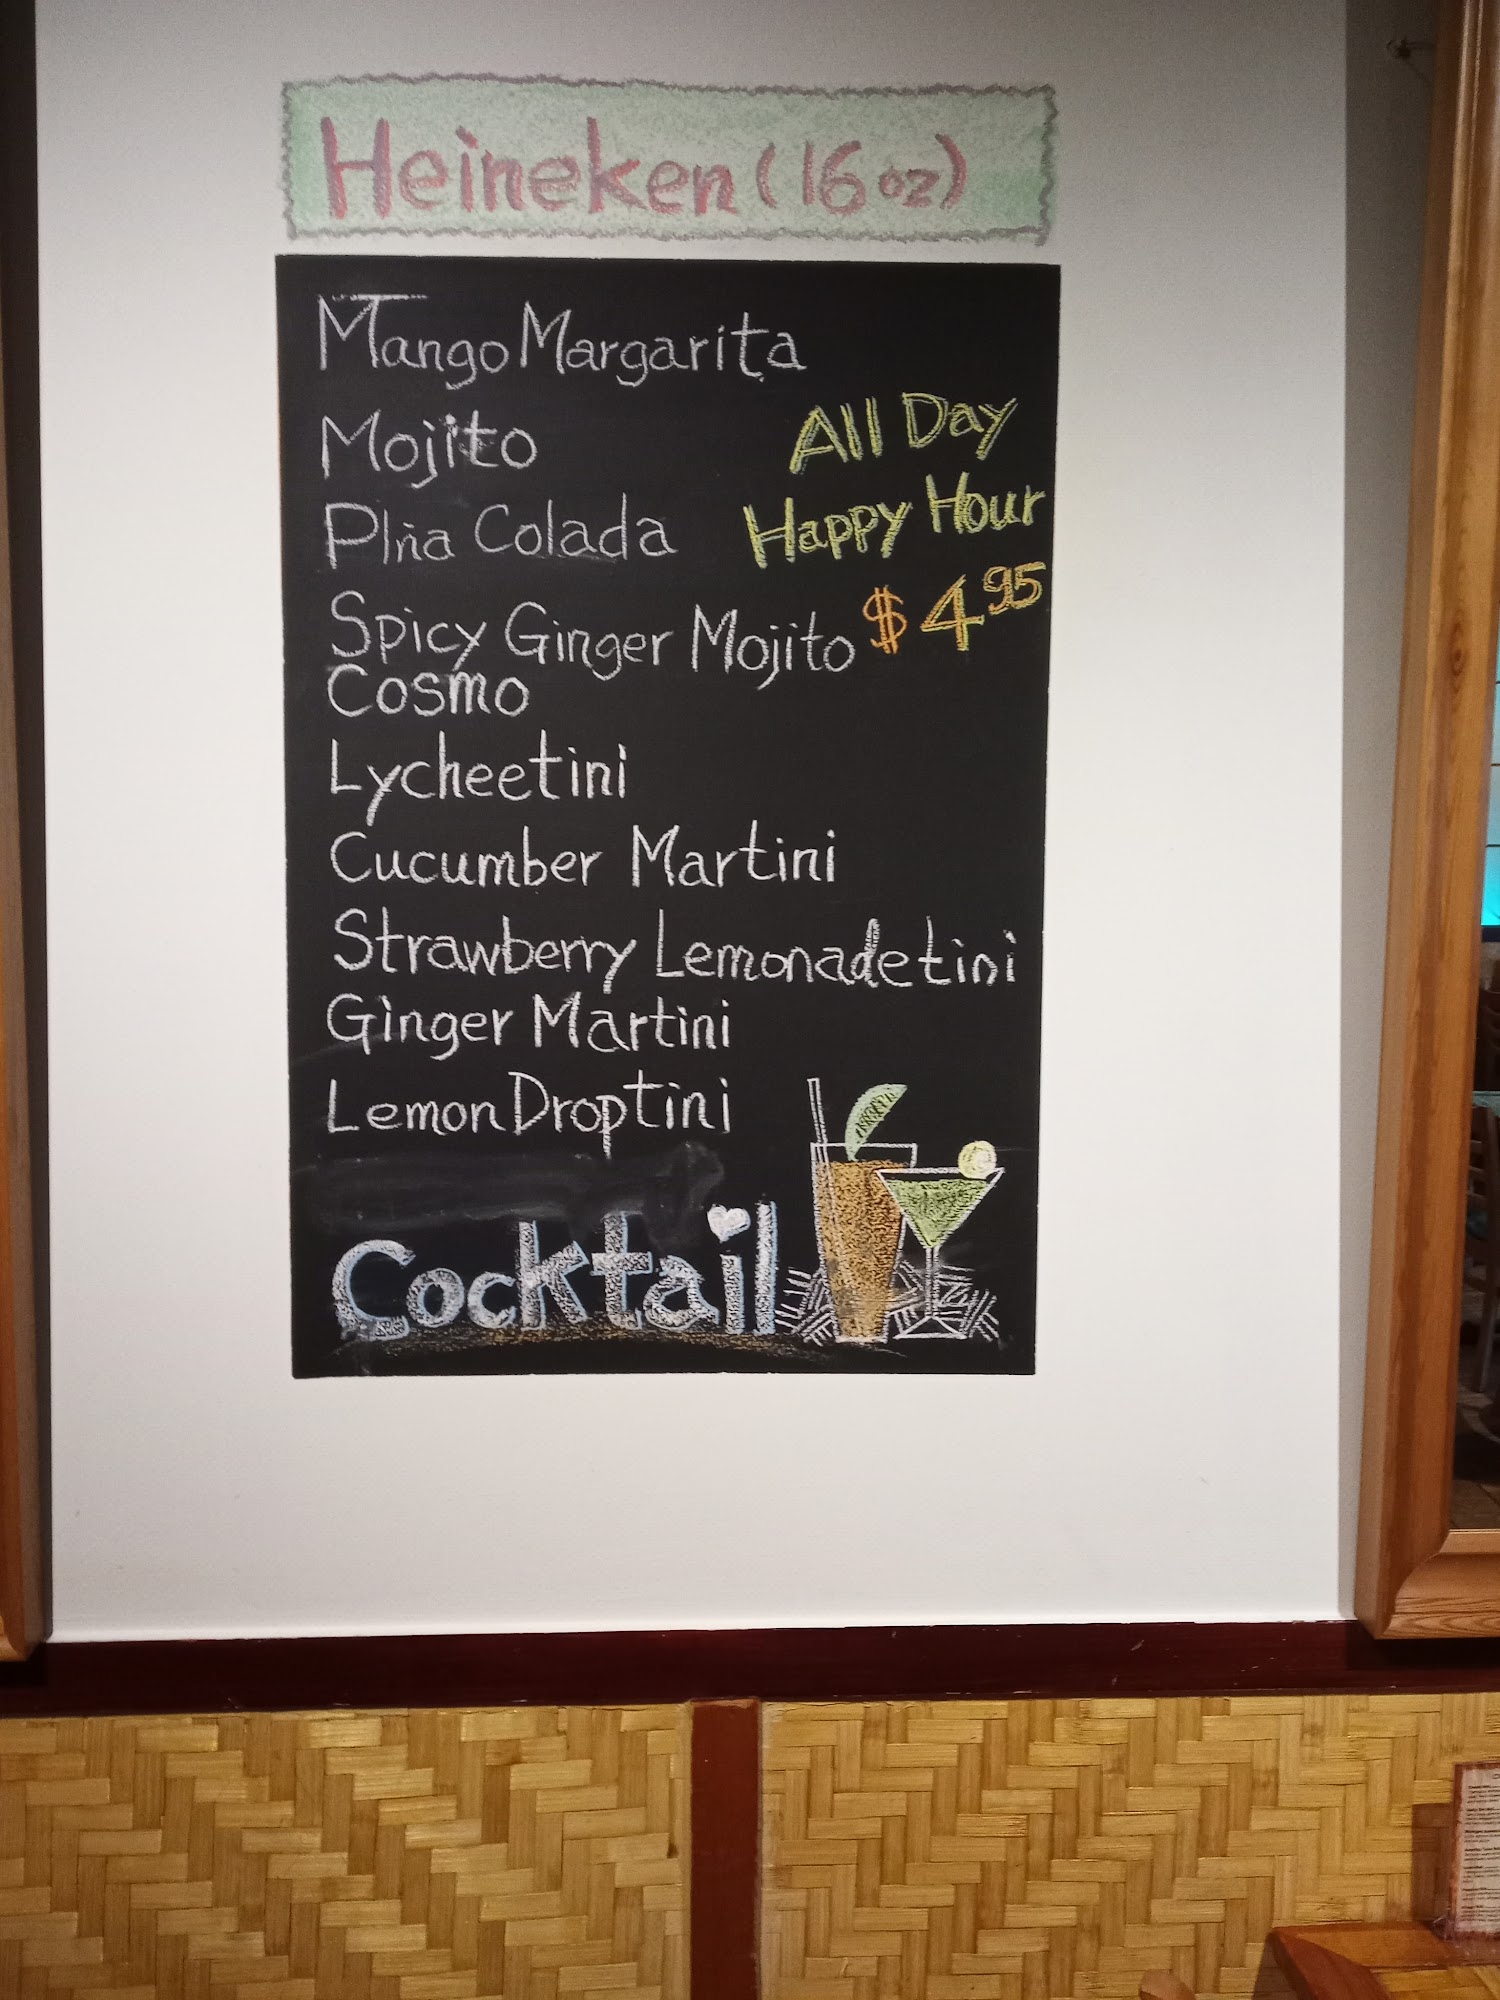 Heineken (16 oz)
Mango Margarita
Mojito
All Day
Piña Colada
Happy Hour
Spicy Ginger Mojito
$4.95
Cosmo
Lycheetini
Cucumber Martini
Strawberry Lemonadetini
Ginger Martini
Lemon Droptini
Cocktail